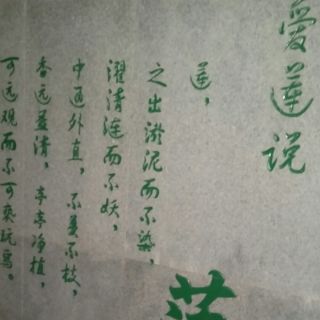 愛蓮说
莲，
之出淤泥而不染，
濯清涟而不妖，
中通外直，不蔓不枝，
香远益清，亭亭净植，
可远观而不可亵玩焉。